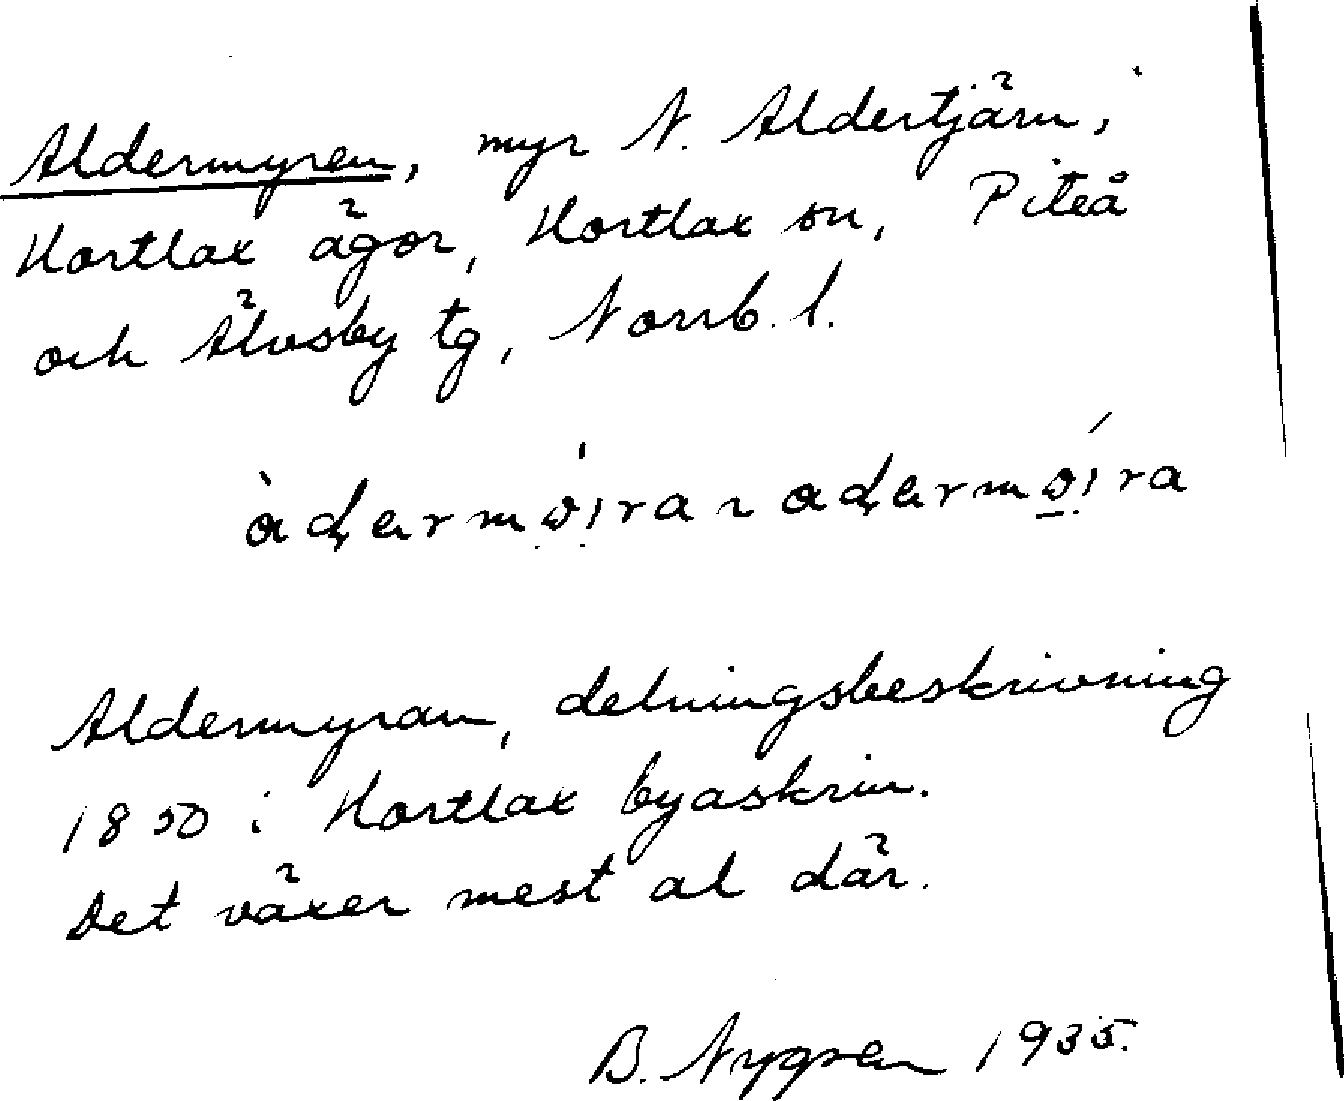 Aldermyren, myr N. Aldertjärn,
Hortlax ägor, Hortlax sn, Piteå
och Älvsby tg, Norrb. l.
Aldermyran, delningsbeskrivning
1850 i Hortlax byaskrin.
Det växer mest al där.
B. Nygren 1935.